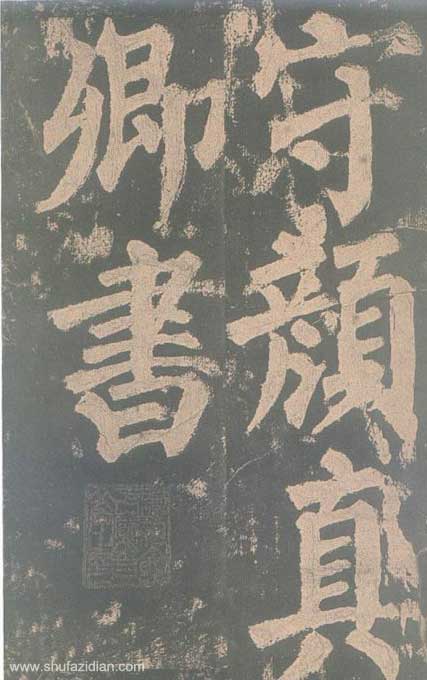 守顔真
卿書
www.shufazidian.com